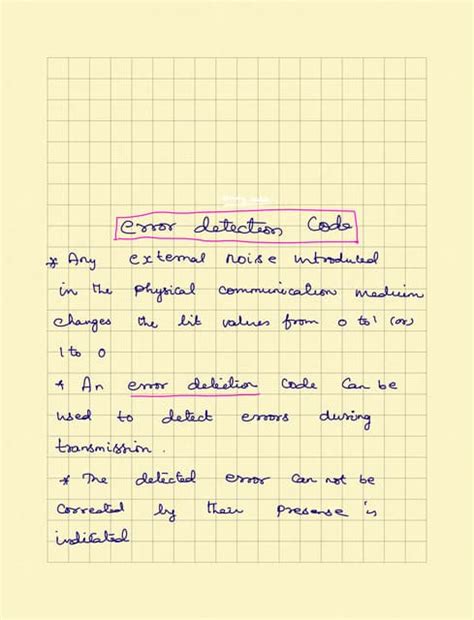 error detection Code
* Any external noise introduced
in the physical communication medium
changes the bit values from 0 to 1 (or)
1 to 0
* An error detection code can be
used to detect errors during
transmission.
* The detected error can not be
corrected by their presense is
indicated